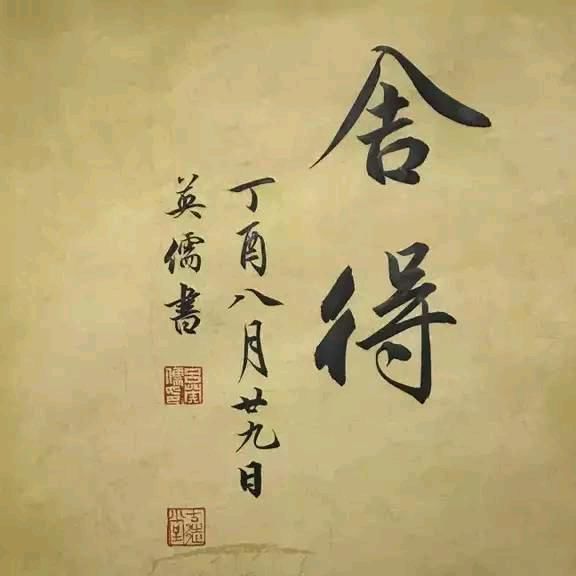 舍得
丁酉八月廿九日
英儒書